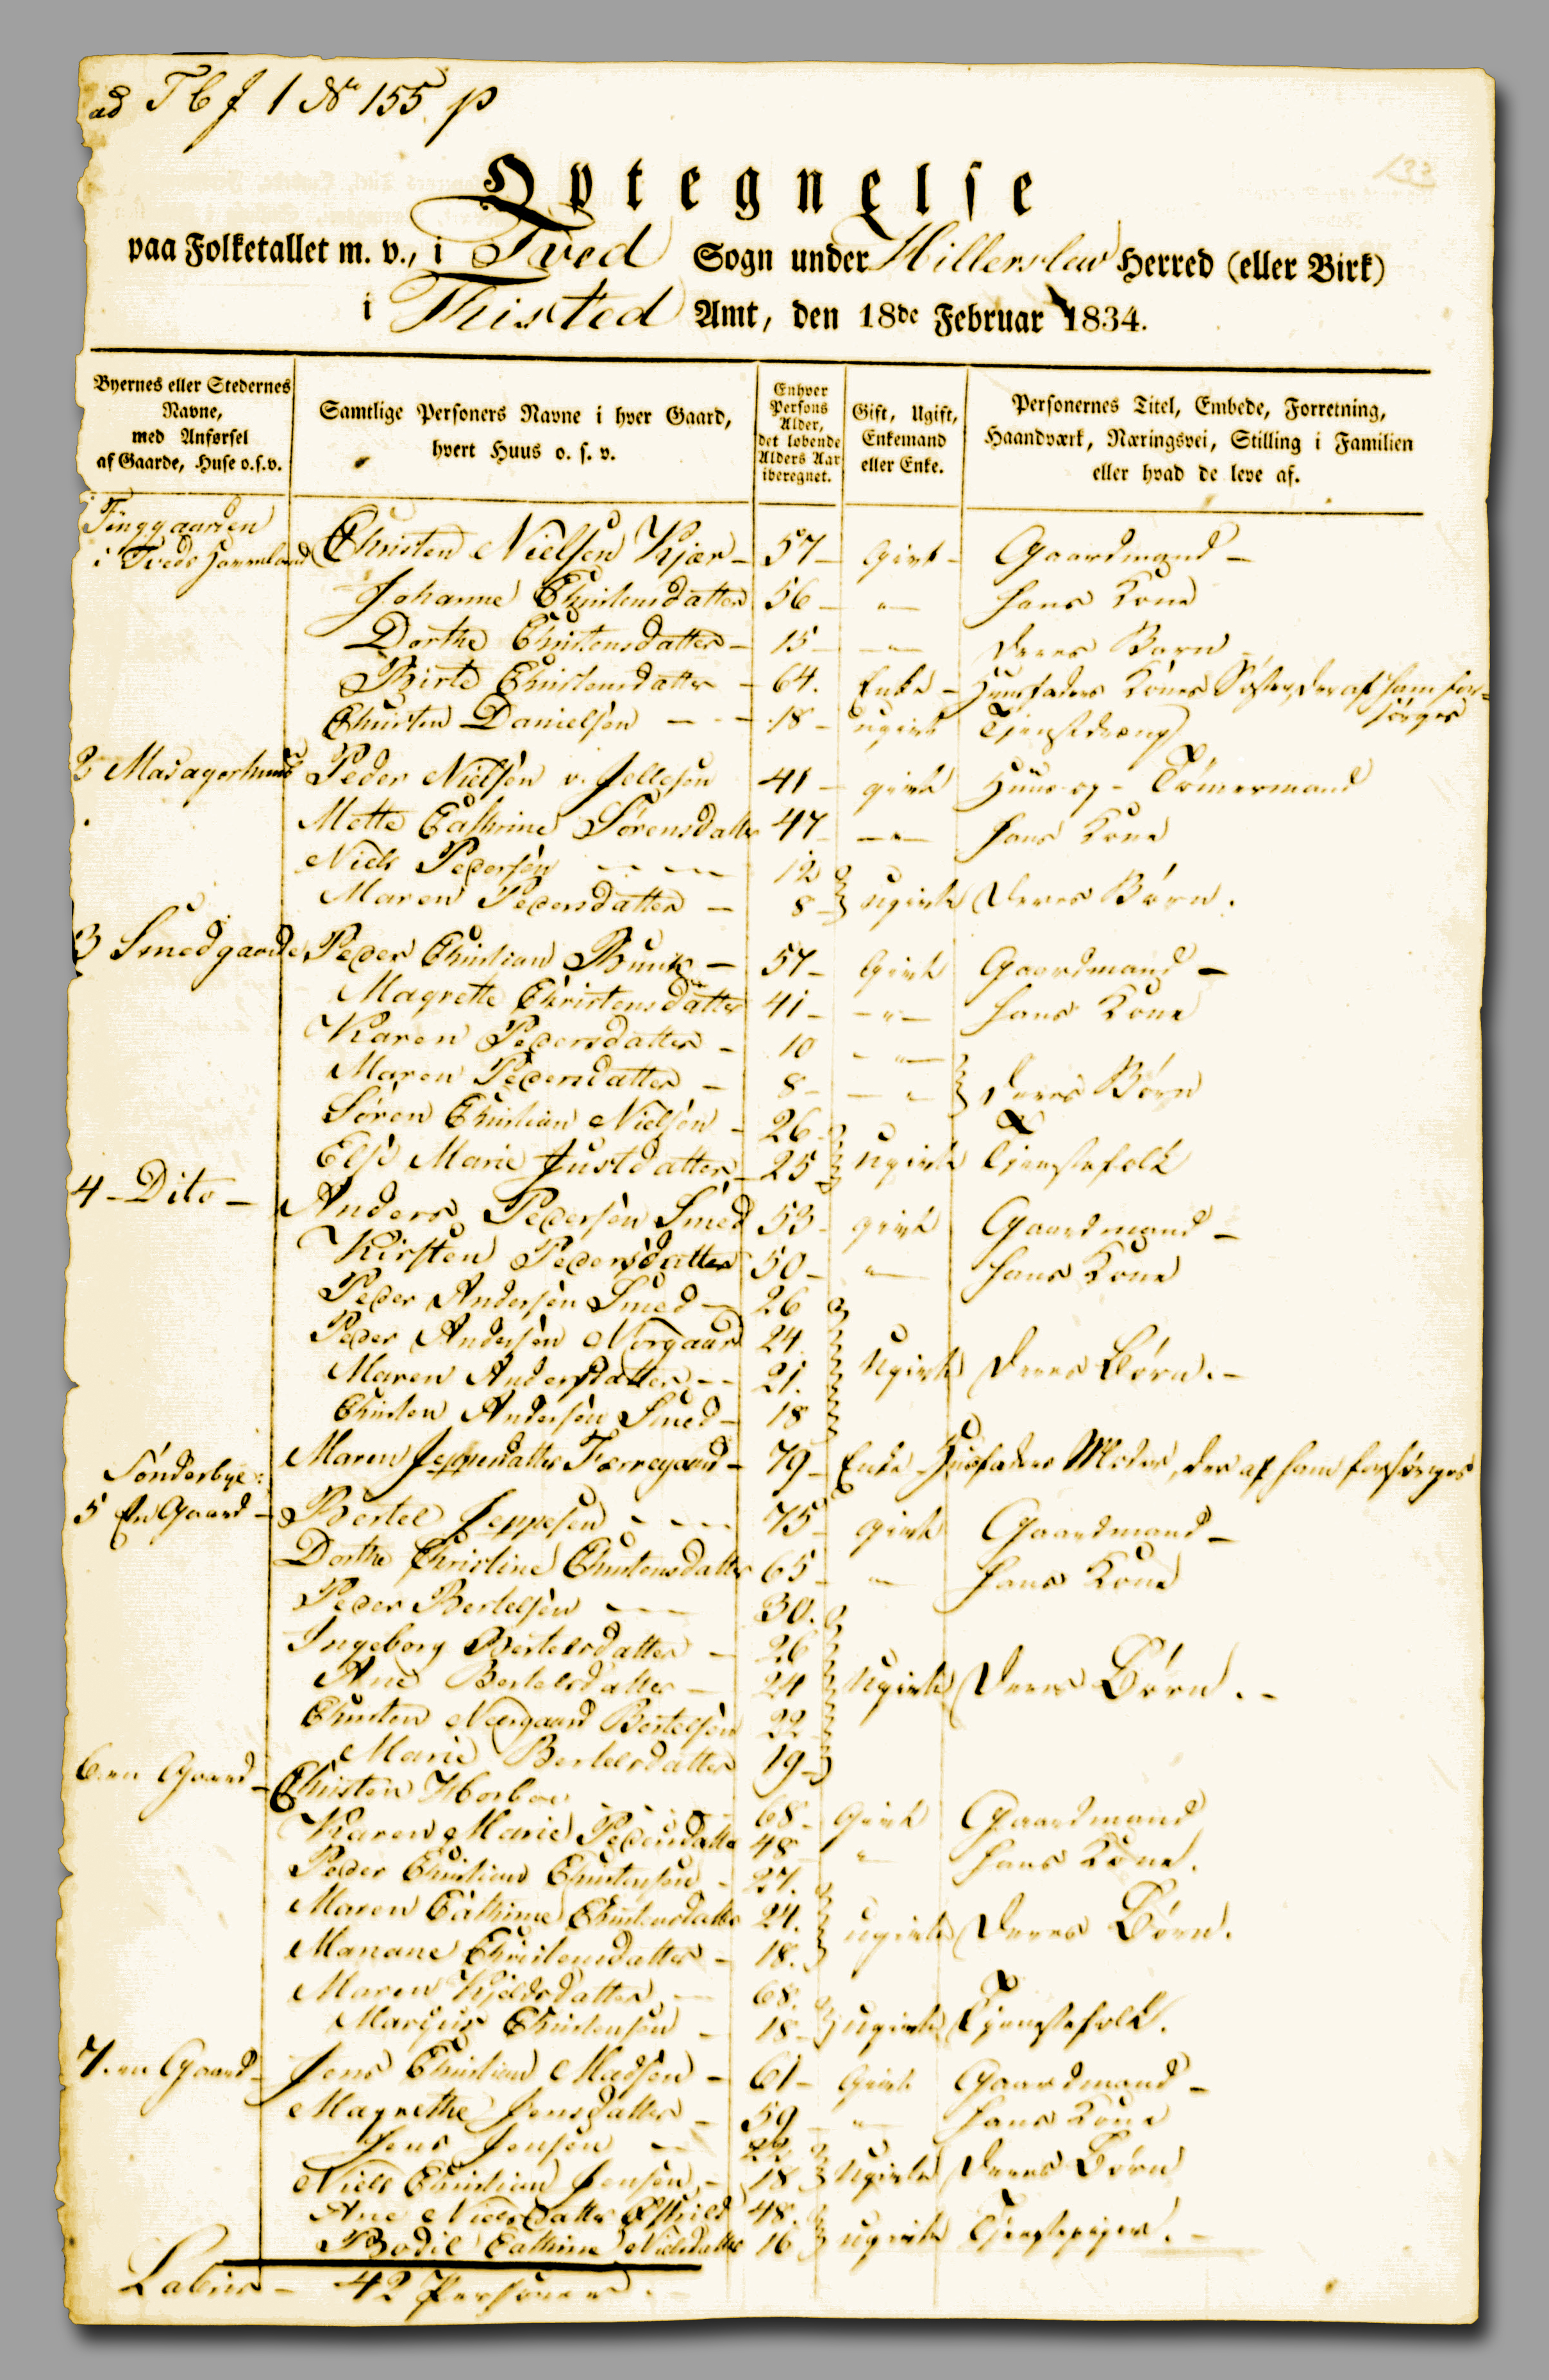 ad T b f 1 No 155. p
133
Optegnelse
paa Folketallet m. v., i Tved Sogn under Hillerslev Herred (eller Birk)
i Thisted Amt, den 18de Februar 1834.
Byernes eller Stedernes Navne, med Anførsel af Gaarde, Huse o.s.v.
Samtlige Personers Navne i hver Gaard, hvert Huus o. s. v.
Enhver Persons Alder, det løbende Alders Aar iberegnet.
Gift, Ugift, Enkemand eller Enke.
Personernes Titel, Embede, Forretning, Haandværk, Næringsvei, Stilling i Familien eller hvad de leve af.
Tinggaarden
i Tveds Christen Nielsen Kjær - 57 - Givt - Gaardmand -
Johanne Christensdatter 56 - " - hans Kone
Dorthe Christensdatter - 15 - " - deres Barn
Birte Christensdatter - 64. Enke - Huusfaders Kones Søster, der af ham for-
sørges
Christen Danielsen - - - 18 - ugivt Tjenestedreng
2 Peder Nielsen v. 41 - givt Huus og - Tømermand
Mette Cathrine Sørensdatter 47 - " - hans Kone
Niels Pedersen - - - 12
Maren Pedersdatter - 8 - ugivte Deres Børn.
3 Smedgaarde Peder Christian Bunk - 57 - Givt Gaardmand -
Magrette Christensdatter 41 - " - hans Kone
Karen Pedersdatter - 10 - " -
Maren Pedersdatter - 8 - " - deres Børn
Søren Christian Nielsen - 26
Else Marie Justdatter - 25 ugivte Tjenestefolk
4 - Dito - Anders Pedersen Smed 53 - givt Gaardmand -
Kirsten Pedersdatter 50 - " - hans Kone
Peder Andersen Smed - 26
Peder Andersen Norgaard 24
Maren Andersdatter - - 21. Ugivte deres Børn. -
Christen Andersen Smed - 18
Maren Jeppesdatter - 79 - Enke Huusfaders Moder, der af ham forsørges
Sønderbye:
5 En Gaard - Bertel Jeppesen - - - 75 - givt Gaardmand -
Dorthe Christine Christensdatter 65 - " - hans Kone
Peder Bertelsen - - 30.
Ingeborg Bertelsdatter - 26
Ane Bertelsdatter - 24 Ugivte Deres Børn. -
Christen Neergaard Bertelsen 22
Marie Bertelsdatter 19 -
6. en Gaard - Christen - - - 68 - Givt Gaardmand
Karen Marie Pedersdatter 48 - " - hans Kone.
Peder Christian Christensen - 27.
Maren Cathrine Christensdatter 24. ugivte Deres Børn.
Mariane Christensdatter - 18.
Maren Kjeldsdatter - 68.
Marcus Christensen - 18 - ugivte Tjenestefolk.
7. en Gaard - Jens Christian Madsen - 61 - Givt Gaardmand -
Magrethe Jensdatter - 59 - " - hans Kone
Jens Jensen - 22.
Niels Christian Jensen - 18 Ugivte Deres Børn
Ane Nielsdatter 48.
Bodil Cathrine Nielsdatter 16 ugivte Tjenestepiger. -
Lateris - 42 Personer. -